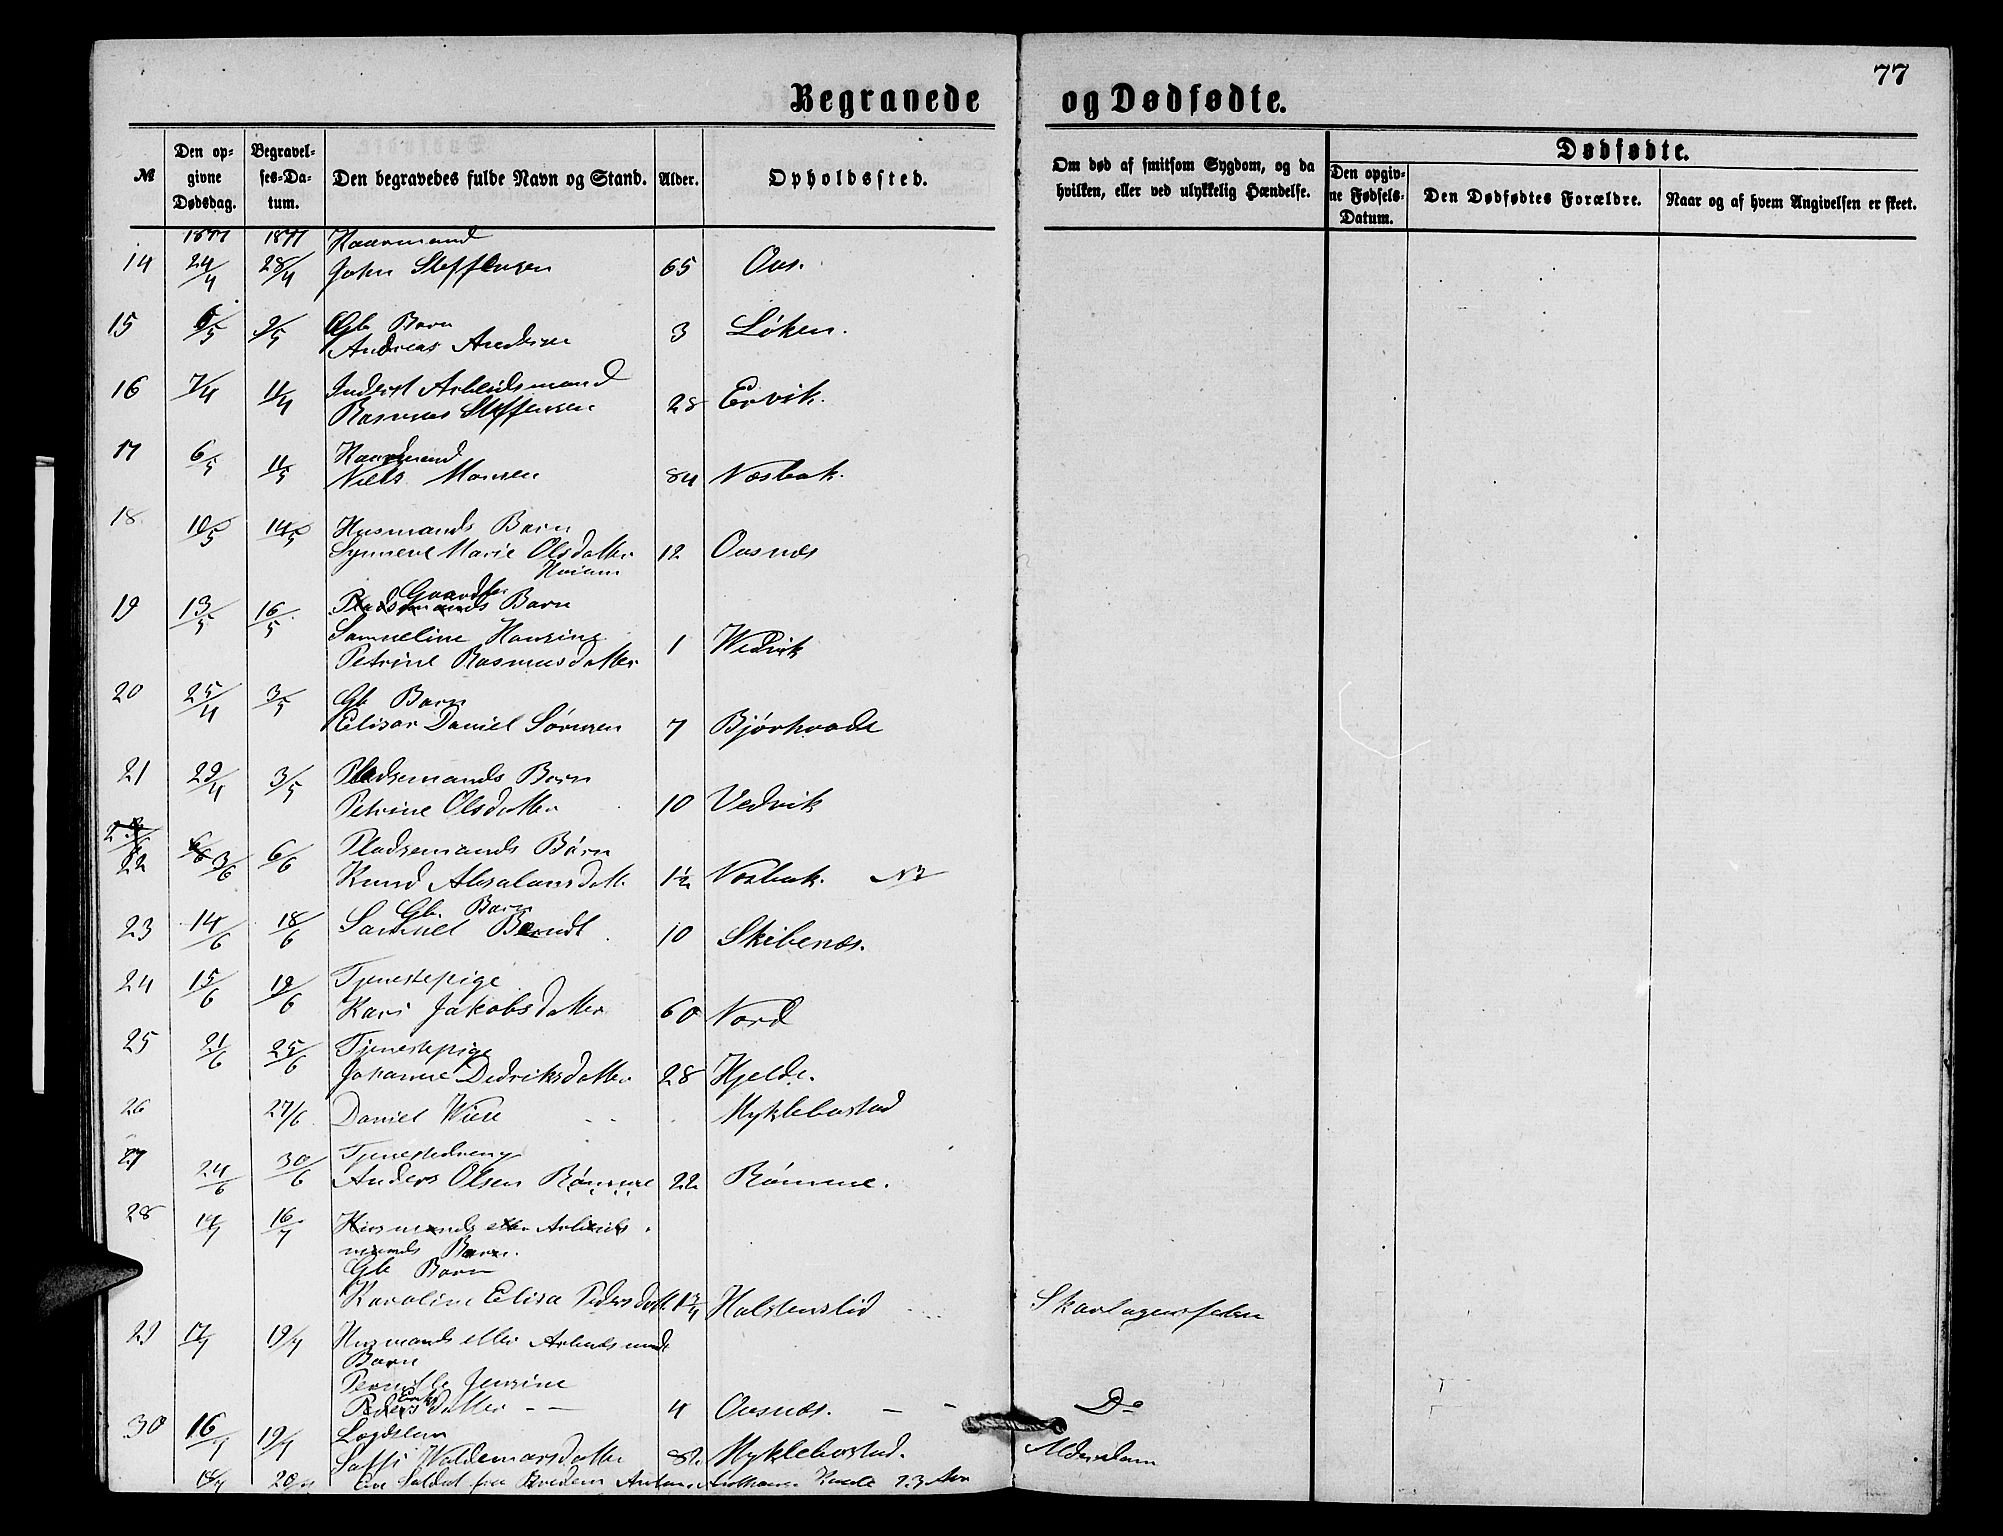 77
Begravede og Dødfødte.
№ Den opgivne Dødsdag. Begravelses-Datum. Den begravedes fulde Navn og Stand. Alder. Opholdssted. Om død af smitsom Sygdom, og da hvilken, eller ved ulykkelig Hændelse. Dødfødte. Den opgivne Fødsels-Datum. Den Dødfødtes Forældre. Naar og af hvem Angivelsen er skeet.
1877 1877 Kaarmand
14 24/4 28/4 John Steffensen 65 Oos.
15 6/5 9/5 Gb Barn
Andreas Andersen 3 Løken.
16 7/4 11/4 Inderst Arbeidsmand
Rasmus Steffensen 28 Ervik.
17 6/5 11/5 Kaarmand
Niels Monsen 84 Næsbak.
18. 10/5 14/5 Husmands Barn
Synneve Marie Olsdatter 12 Oosnæs
19 13/5 16/5 Barn
Samueline Hansine
Petrine Rasmusdatter 1 Wedvik
20 25/4 3/5 Gb Barn
Elisar Daniel Sørensen 7
21 29/4 3/5 Pladsemands Barn
Petrine Olsdatter 10 Vedvik
22 3/6 6/6 Pladsemands Børn
Knud Absalonsdatt. 1½ Næsbak.
Gb. Barn
23 14/6 18/6 Samuel Berndt 10 Skibenæs.
24 15/6 19/6 Tjenestepige
Kari Jakobsdatter 60 Nord
25 21/6 25/6 Tjenestepige
Johanne Didriksdatter 28 Hjelde.
26 27/6 Daniel Wiese Myklebostad
27 24/6 30/6 Tjenestedreng
Anders Olsen Rømme 22 Rømme.
28 16/7 Husmands eller Arbeids-
mands Barn.
Gb Barn
Karoline Elisa Pedersdatt. Holstenslid Skarlagensfeber
29 19/7 Husmands eller Arbeidsmands
Barn
Pernille Jensine
datter — — 4 Oosnæs. — — Do
30 16/7 19/7 Lægdslem
Waldemarsdatter Myklebostad. Alderdom
20/7 En Soldat fra 23 Aar